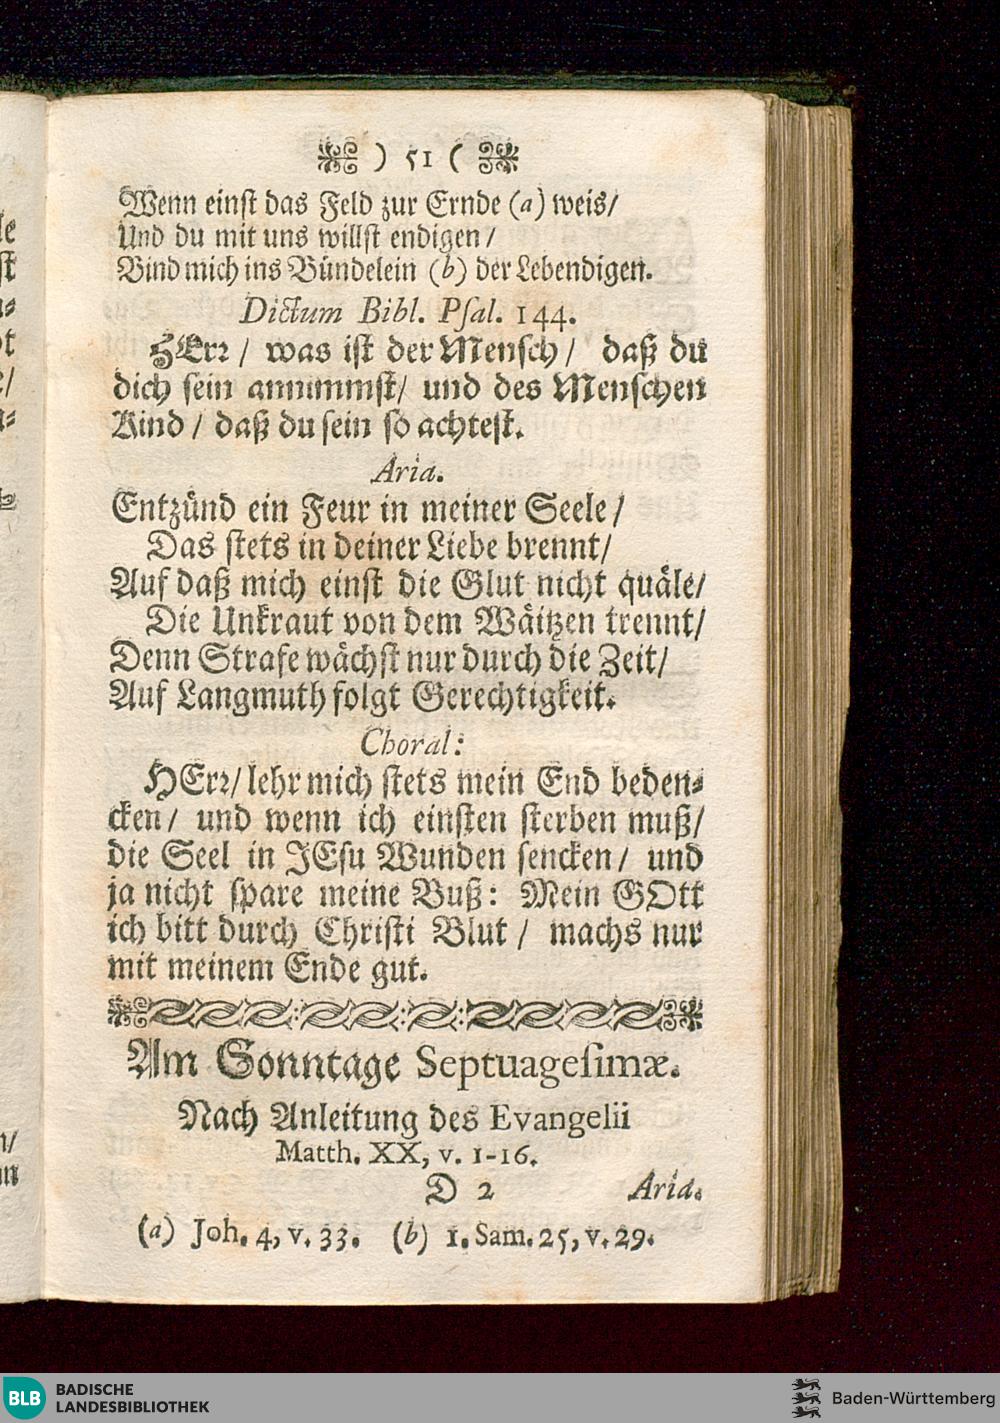 ) 51 (
Wenn einst das Feld zur Ernde (a) weis/
Und du mit uns willst endigen/
Bind mich ins Bündelein (b) der Lebendigen.
Dictum Bibl. Psal. 144.
HErr / was ist der Mensch / daß du
dich sein annimmst / und des Menschen
Kind / daß du sein so achtest.
Aria.
Entzünd ein Feur in meiner Seele /
Das stets in deiner Liebe brennt /
Auf daß mich einst die Glut nicht quäle /
Die Unkraut von dem Wäitzen trennt /
Denn Strafe wächst nur durch die Zeit /
Auf Langmuth folgt Gerechtigkeit.
Choral:
HErr / lehr mich stets mein End beden-
cken / und wenn ich einsten sterben muß /
die Seel in JEsu Wunden sencken / und
ja nicht spare meine Buß: Mein GOtt
ich bitt durch Christi Blut / machs nur
mit meinem Ende gut.
Am Sonntage Septuagesimæ.
Nach Anleitung des Evangelii
Matth. XX, v. 1-16.
D 2 Aria.
(a) Joh. 4, v. 33. (b) 1. Sam. 25, v. 29.
BLB BADISCHE
LANDESBIBLIOTHEK
Baden-Württemberg